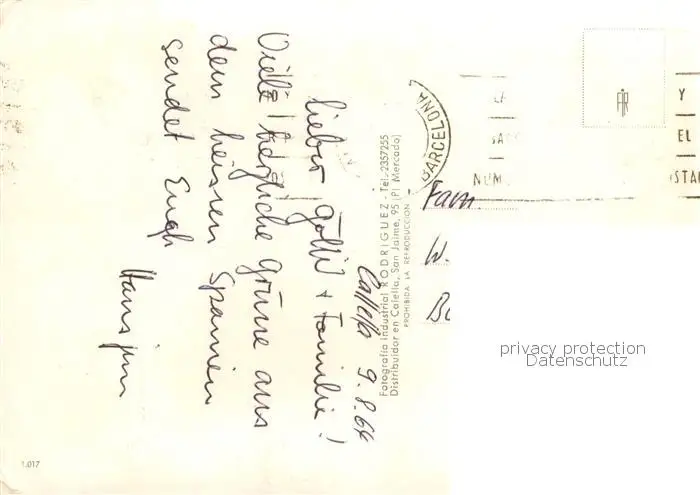 Calella 9.8.64
Lieber Götti + Familie!
Viele herzliche Grüsse aus
dem heissen Spanien
sendet Euch
Hansjürg
Fotografía Industrial RODRIGUEZ - Tel. 2357255
Distribuidor en Calella, San Jaime, 95 (Pl Mercado)
PROHIBIDA LA REPRODUCCION
BARCELONA
Y
EL
NUM
Fam.
W.
privacy protection
Datenschutz
1.017